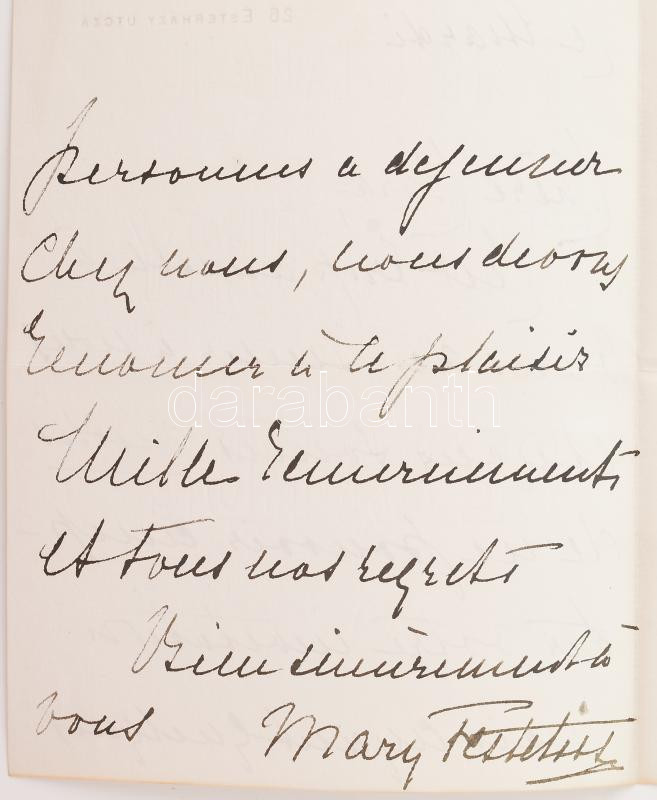 personnes a dejeuner
Chez nous, nous devons
renoncer à ce plaisir
Mille remerciements
et tous nos regrets
Bien sincèrement à
vous Mary Festetics
darabanth
26 ESTERHÁZY UTCZA